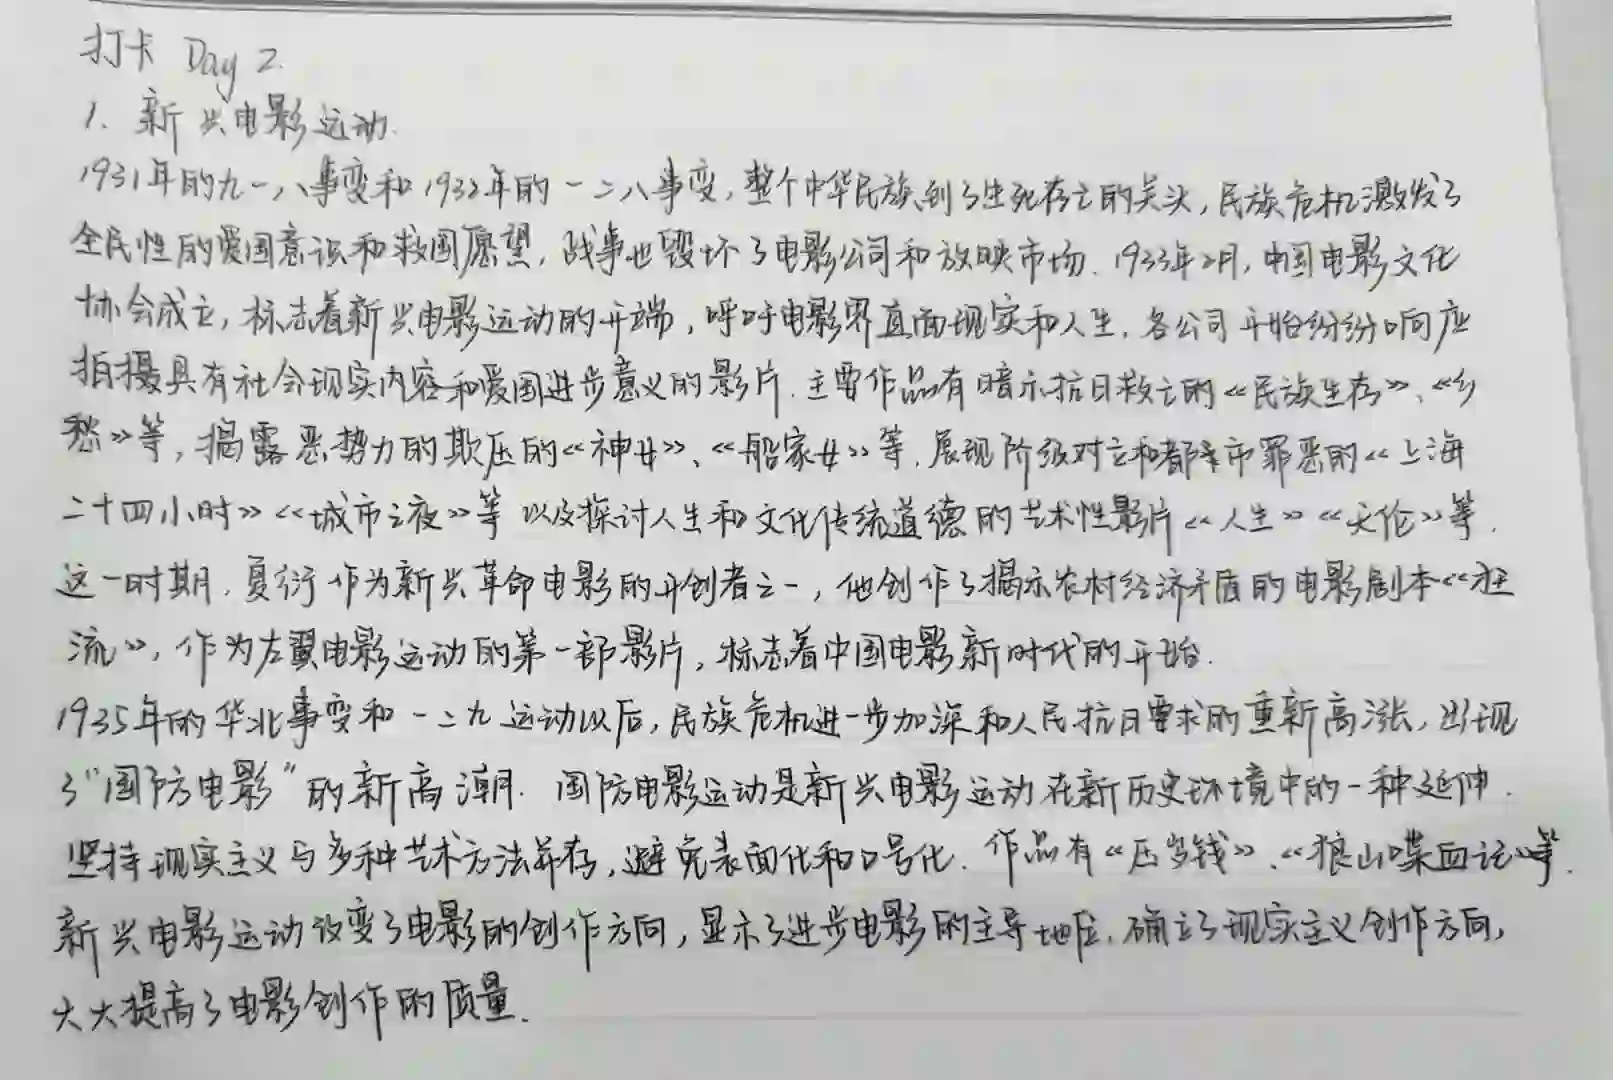 打卡 Day 2.
1. 新兴电影运动.
1931年的九一八事变和1932年的一二八事变,整个中华民族到了生死存亡的关头,民族危机激发了
全民性的爱国意识和救国愿望,战事也毁坏了电影公司和放映市场.1933年2月,中国电影文化
协会成立,标志着新兴电影运动的开端,呼吁电影界直面现实和人生.各公司开始纷纷响应
拍摄具有社会现实内容和爱国进步意义的影片.主要作品有暗示抗日救亡的《民族生存》、《乡
愁》等,揭露恶势力的欺压的《神女》、《船家女》等.展现阶级对立和都市罪恶的《上海
二十四小时》《城市之夜》等以及探讨人生和文化传统道德的艺术性影片《人生》《天伦》等.
这一时期.夏衍作为新兴革命电影的开创者之一,他创作了揭示农村经济矛盾的电影剧本《狂
流》,作为左翼电影运动的第一部影片,标志着中国电影新时代的开始.
1935年的华北事变和一二九运动以后,民族危机进一步加深和人民抗日要求的重新高涨,出现
了"国防电影"的新高潮.国防电影运动是新兴电影运动在新历史环境中的一种延伸.
坚持现实主义与多种艺术方法并存,避免表面化和口号化.作品有《压岁钱》、《狼山喋血记》等.
新兴电影运动改变了电影的创作方向,显示了进步电影的主导地位.确立了现实主义创作方向,
大大提高了电影创作的质量.